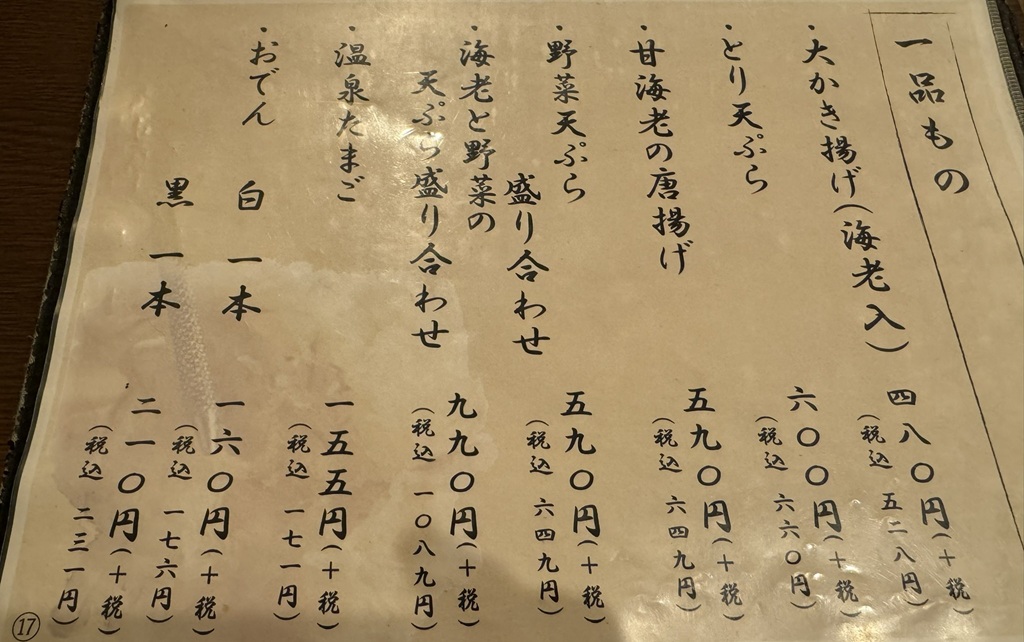 一品もの
・大かき揚げ(海老入)
四八〇円(+税)
(税込 五二八円)
・とり天ぷら
六〇〇円(+税)
(税込 六六〇円)
・甘海老の唐揚げ
五九〇円(+税)
(税込 六四九円)
・野菜天ぷら
盛り合わせ
五九〇円(+税)
(税込 六四九円)
・海老と野菜の
天ぷら盛り合わせ
九九〇円(+税)
(税込 一〇八九円)
・温泉たまご
一五五円(+税)
(税込 一七一円)
・おでん
白 一本
一六〇円(+税)
(税込 一七六円)
黒 一本
二一〇円(+税)
(税込 二三一円)
⑰